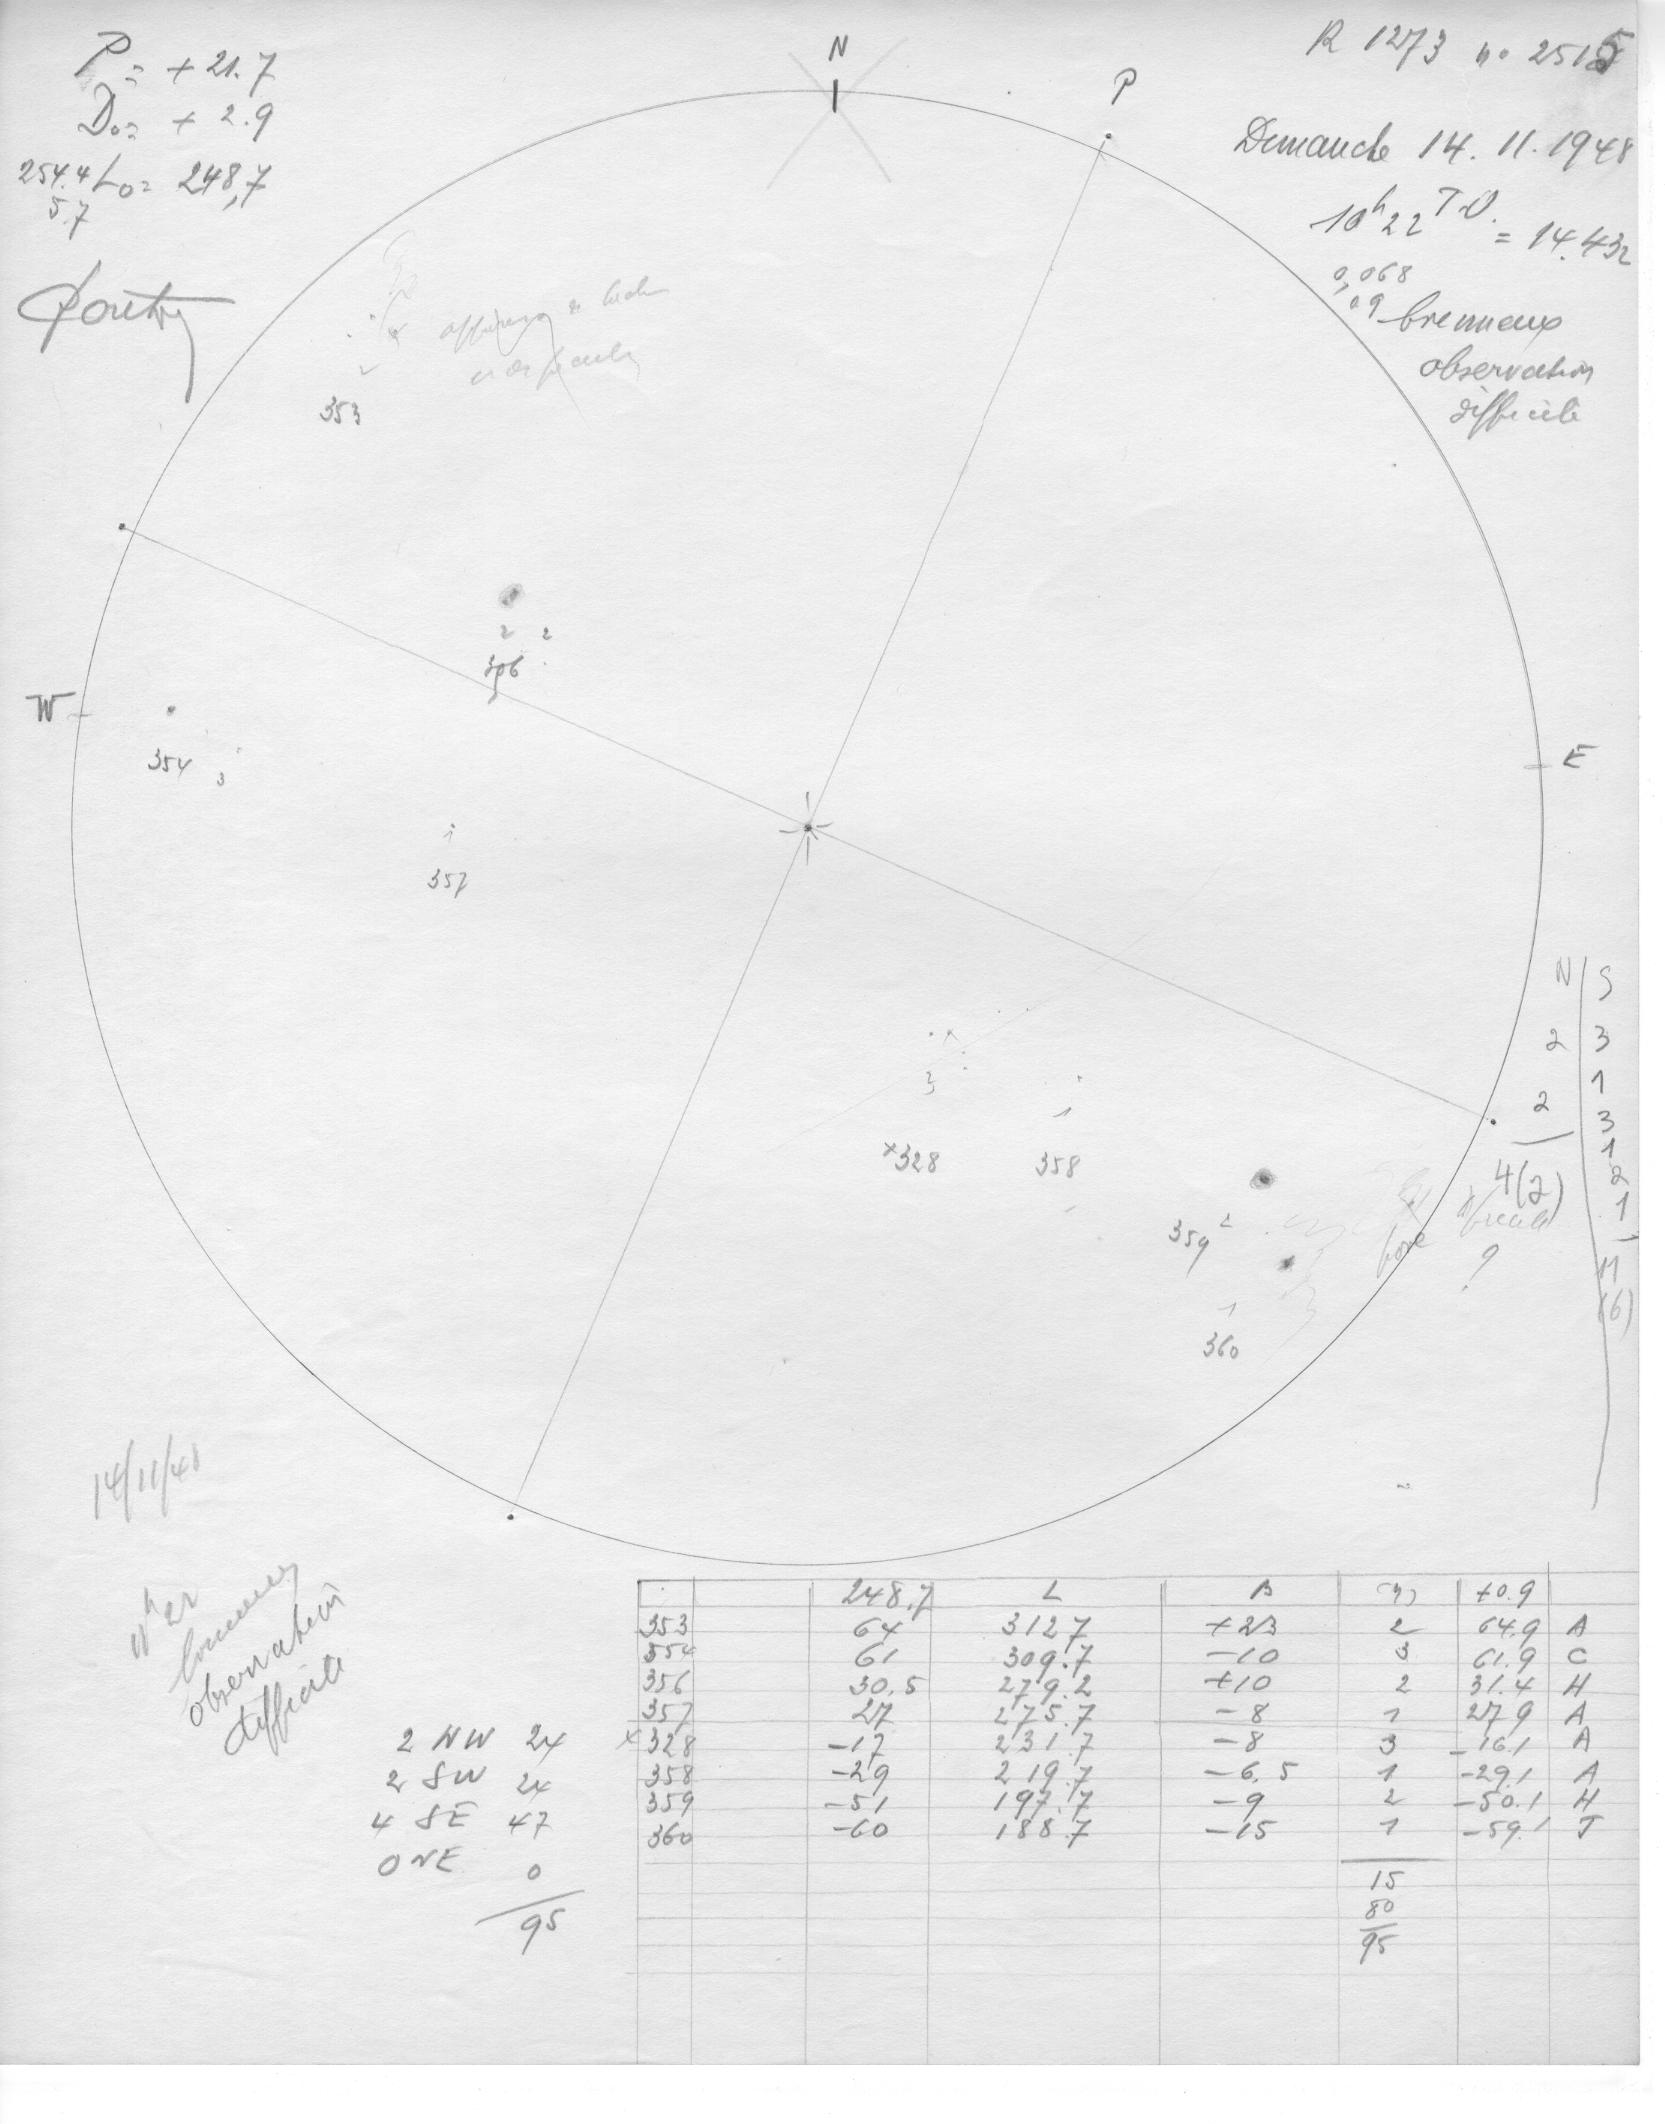 P = + 21.7
D₀ = + 2.9
254.4 L₀ = 248,7
5.7
N
P
R 1273 n° 2515
Dimanche 14. 11. 1948
10h22 T.O. = 14.432
0,068
0.9 brumeux
observation
difficile
353
2 2
356
W
354 3
E
357
N S
2 3
1
2 3
1
4(2) 2
1
11
(6)
3
x328
1
358
359 2
1
360
difficile
?
14/11/48
observation
difficile
2 NW 24
2 SW 24
4 SE 47
0 NE 0
95
248.7 L B (n) +0.9
353 64 312 7 +23 2 64.9 A
354 61 309.7 -10 3 61.9 C
356 30.5 279.2 +10 2 31.4 H
357 27 275.7 -8 1 27 9 A
x 328 -17 231.7 -8 3 -16.1 A
358 -29 219.7 -6.5 1 -29.1 A
359 -51 197.7 -9 2 -50.1 H
360 -60 188.7 -15 1 -59.1 J
15
80
95